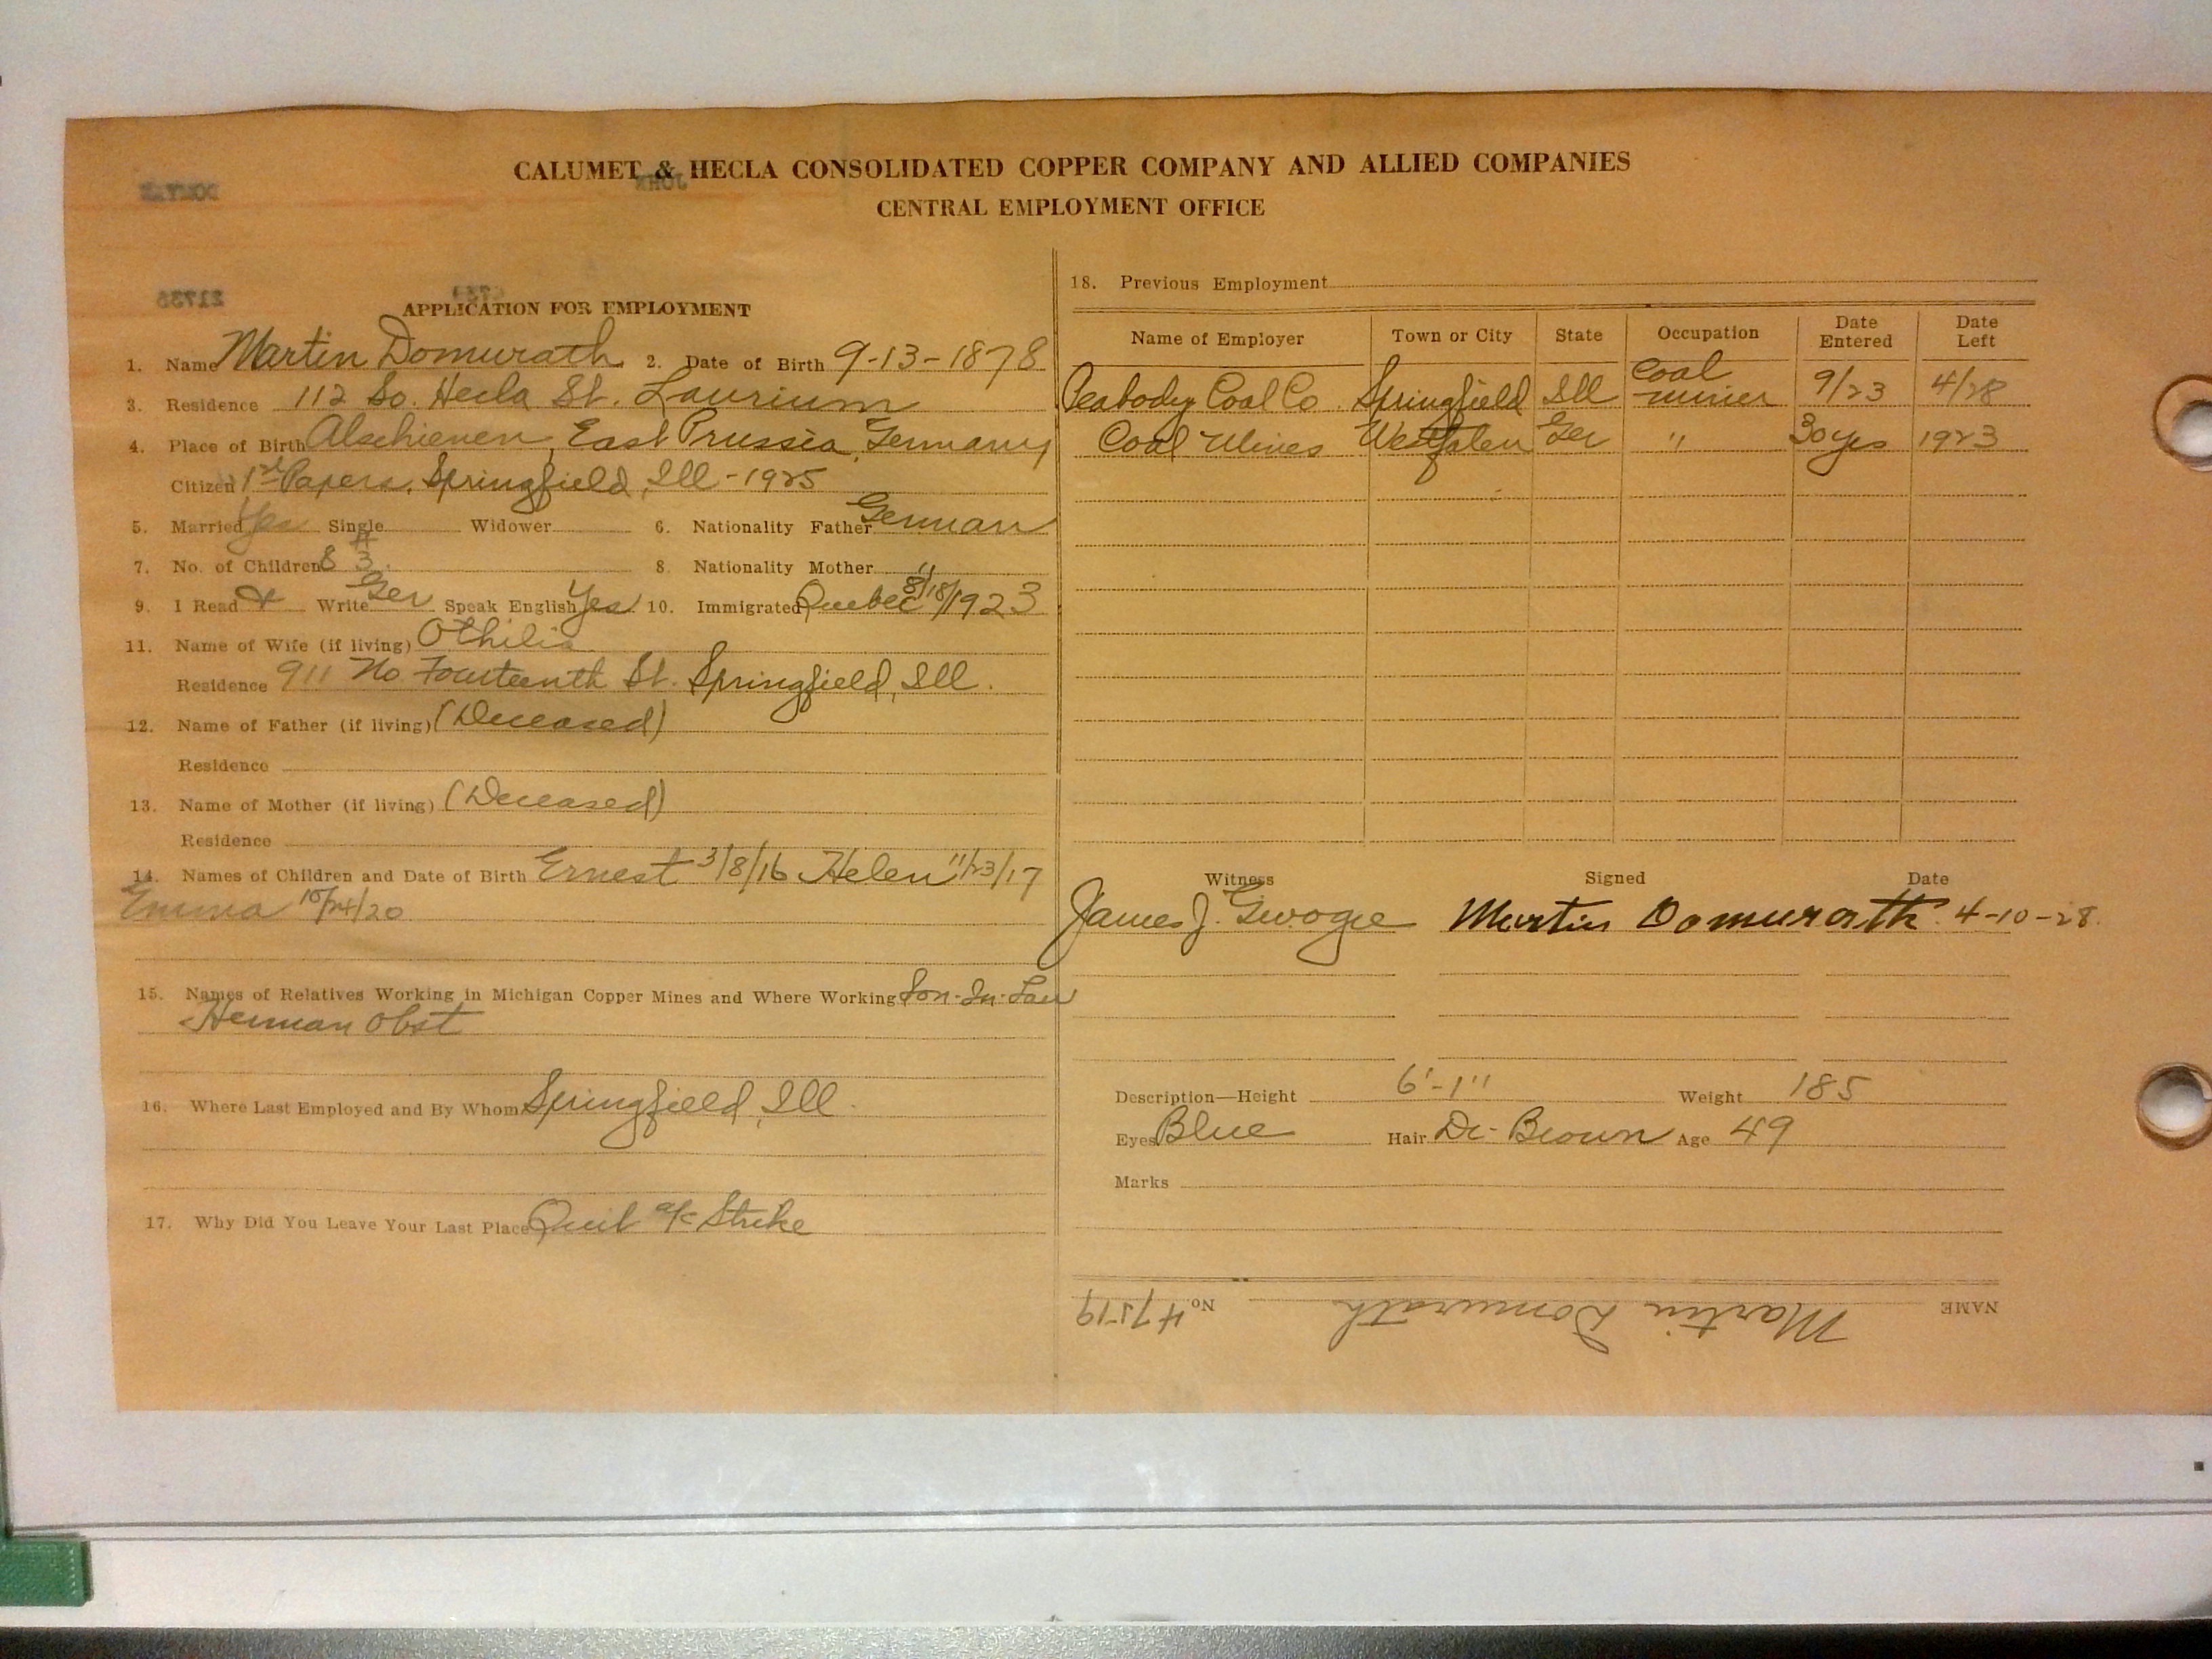 CALUMET & HECLA CONSOLIDATED COPPER COMPANY AND ALLIED COMPANIES
CENTRAL EMPLOYMENT OFFICE
APPLICATION FOR EMPLOYMENT
1. Name Martin Domurath 2. Date of Birth 9-13-1878
3. Residence 112 So. Hecla St. Laurium
4. Place of Birth Alschienen, East Prussia, Germany
Citizen 1st Papers, Springfield, Ill - 1925
5. Married Yes Single Widower 6. Nationality Father German
7. No. of Children 8 3 8. Nationality Mother "
9. I Read & Write Ger Speak English Yes 10. Immigrated Quebec 8/18/1923
11. Name of Wife (if living) Othilia
Residence 911 No Fourteenth St. Springfield, Ill.
12. Name of Father (if living) (Deceased)
Residence
13. Name of Mother (if living) (Deceased)
Residence
14. Names of Children and Date of Birth Ernest 3/8/16 Helen 11/23/17
Emma 10/24/20
15. Names of Relatives Working in Michigan Copper Mines and Where Working Son-In-Law
Herman Obst
16. Where Last Employed and By Whom Springfield, Ill.
17. Why Did You Leave Your Last Place Quit a/c Strike
18. Previous Employment
Name of Employer Town or City State Occupation Date Entered Date Left
Peabody Coal Co Springfield Ill Coal miner 9/23 4/28
Coal Mines Westfalen Ger " 30 yrs 1923
Witness Signed Date
James J. Martin Domurath 4-10-28
Description—Height 6'-1" Weight 185
Eyes Blue Hair Dk-Brown Age 49
Marks
NAME Martin Domurath No. 47519